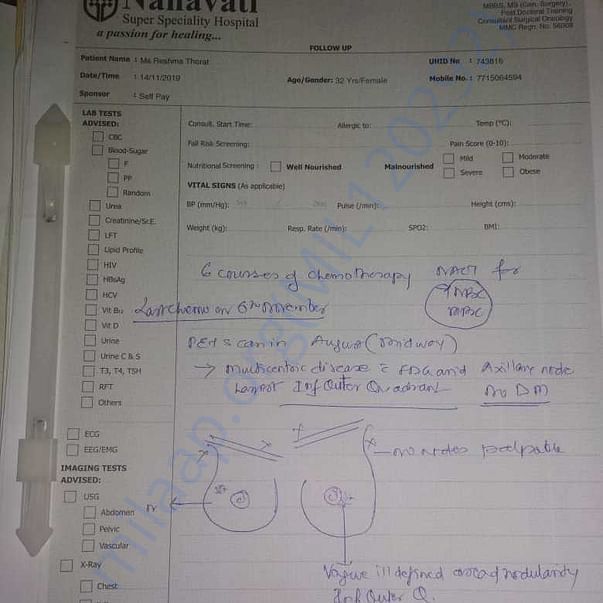 Nanavati
Super Speciality Hospital
a passion for healing...
MBBS, MS (Gen. Surgery),
Post Doctoral Training
Consultant Surgical Oncology
MMC Regn. No. 56008
FOLLOW UP
Patient Name : Ms Reshma Thorat
UHID No : 743816
Date/Time : 14/11/2019
Age/Gender: 32 Yrs/Female
Mobile No. : 7715064594
Sponsor : Self Pay
LAB TESTS
ADVISED:
CBC
Blood-Sugar
F
PP
Random
Urea
Creatinine/Sr.E.
LFT
Lipid Profile
HIV
HBsAg
HCV
Vit B12
Vit D
Urine
Urine C & S
T3, T4, TSH
RFT
Others
ECG
EEG/EMG
IMAGING TESTS
ADVISED:
USG
Abdomen
Pelvic
Vascular
X-Ray
Chest
Consult. Start Time:
Allergic to:
Temp (°C):
Fall Risk Screening:
Pain Score (0-10):
Nutritional Screening :
Well Nourished
Malnourished
Mild
Moderate
Severe
Obese
VITAL SIGNS (As applicable)
BP (mm/Hg):
Pulse (/min):
Height (cms):
Weight (kg):
Resp. Rate (/min):
SPO2:
BMI:
6 courses of chemotherapy NACT for
TNBC
Last chemo on 6th November
PET scan in August (midway)
→ Multicentric disease c FDG avid axillary node
Largest Inf Outer Quadrant
No DM
no nodes palpable
N
Vague illdefined nodularity
Inf Outer Q.
milaap.org